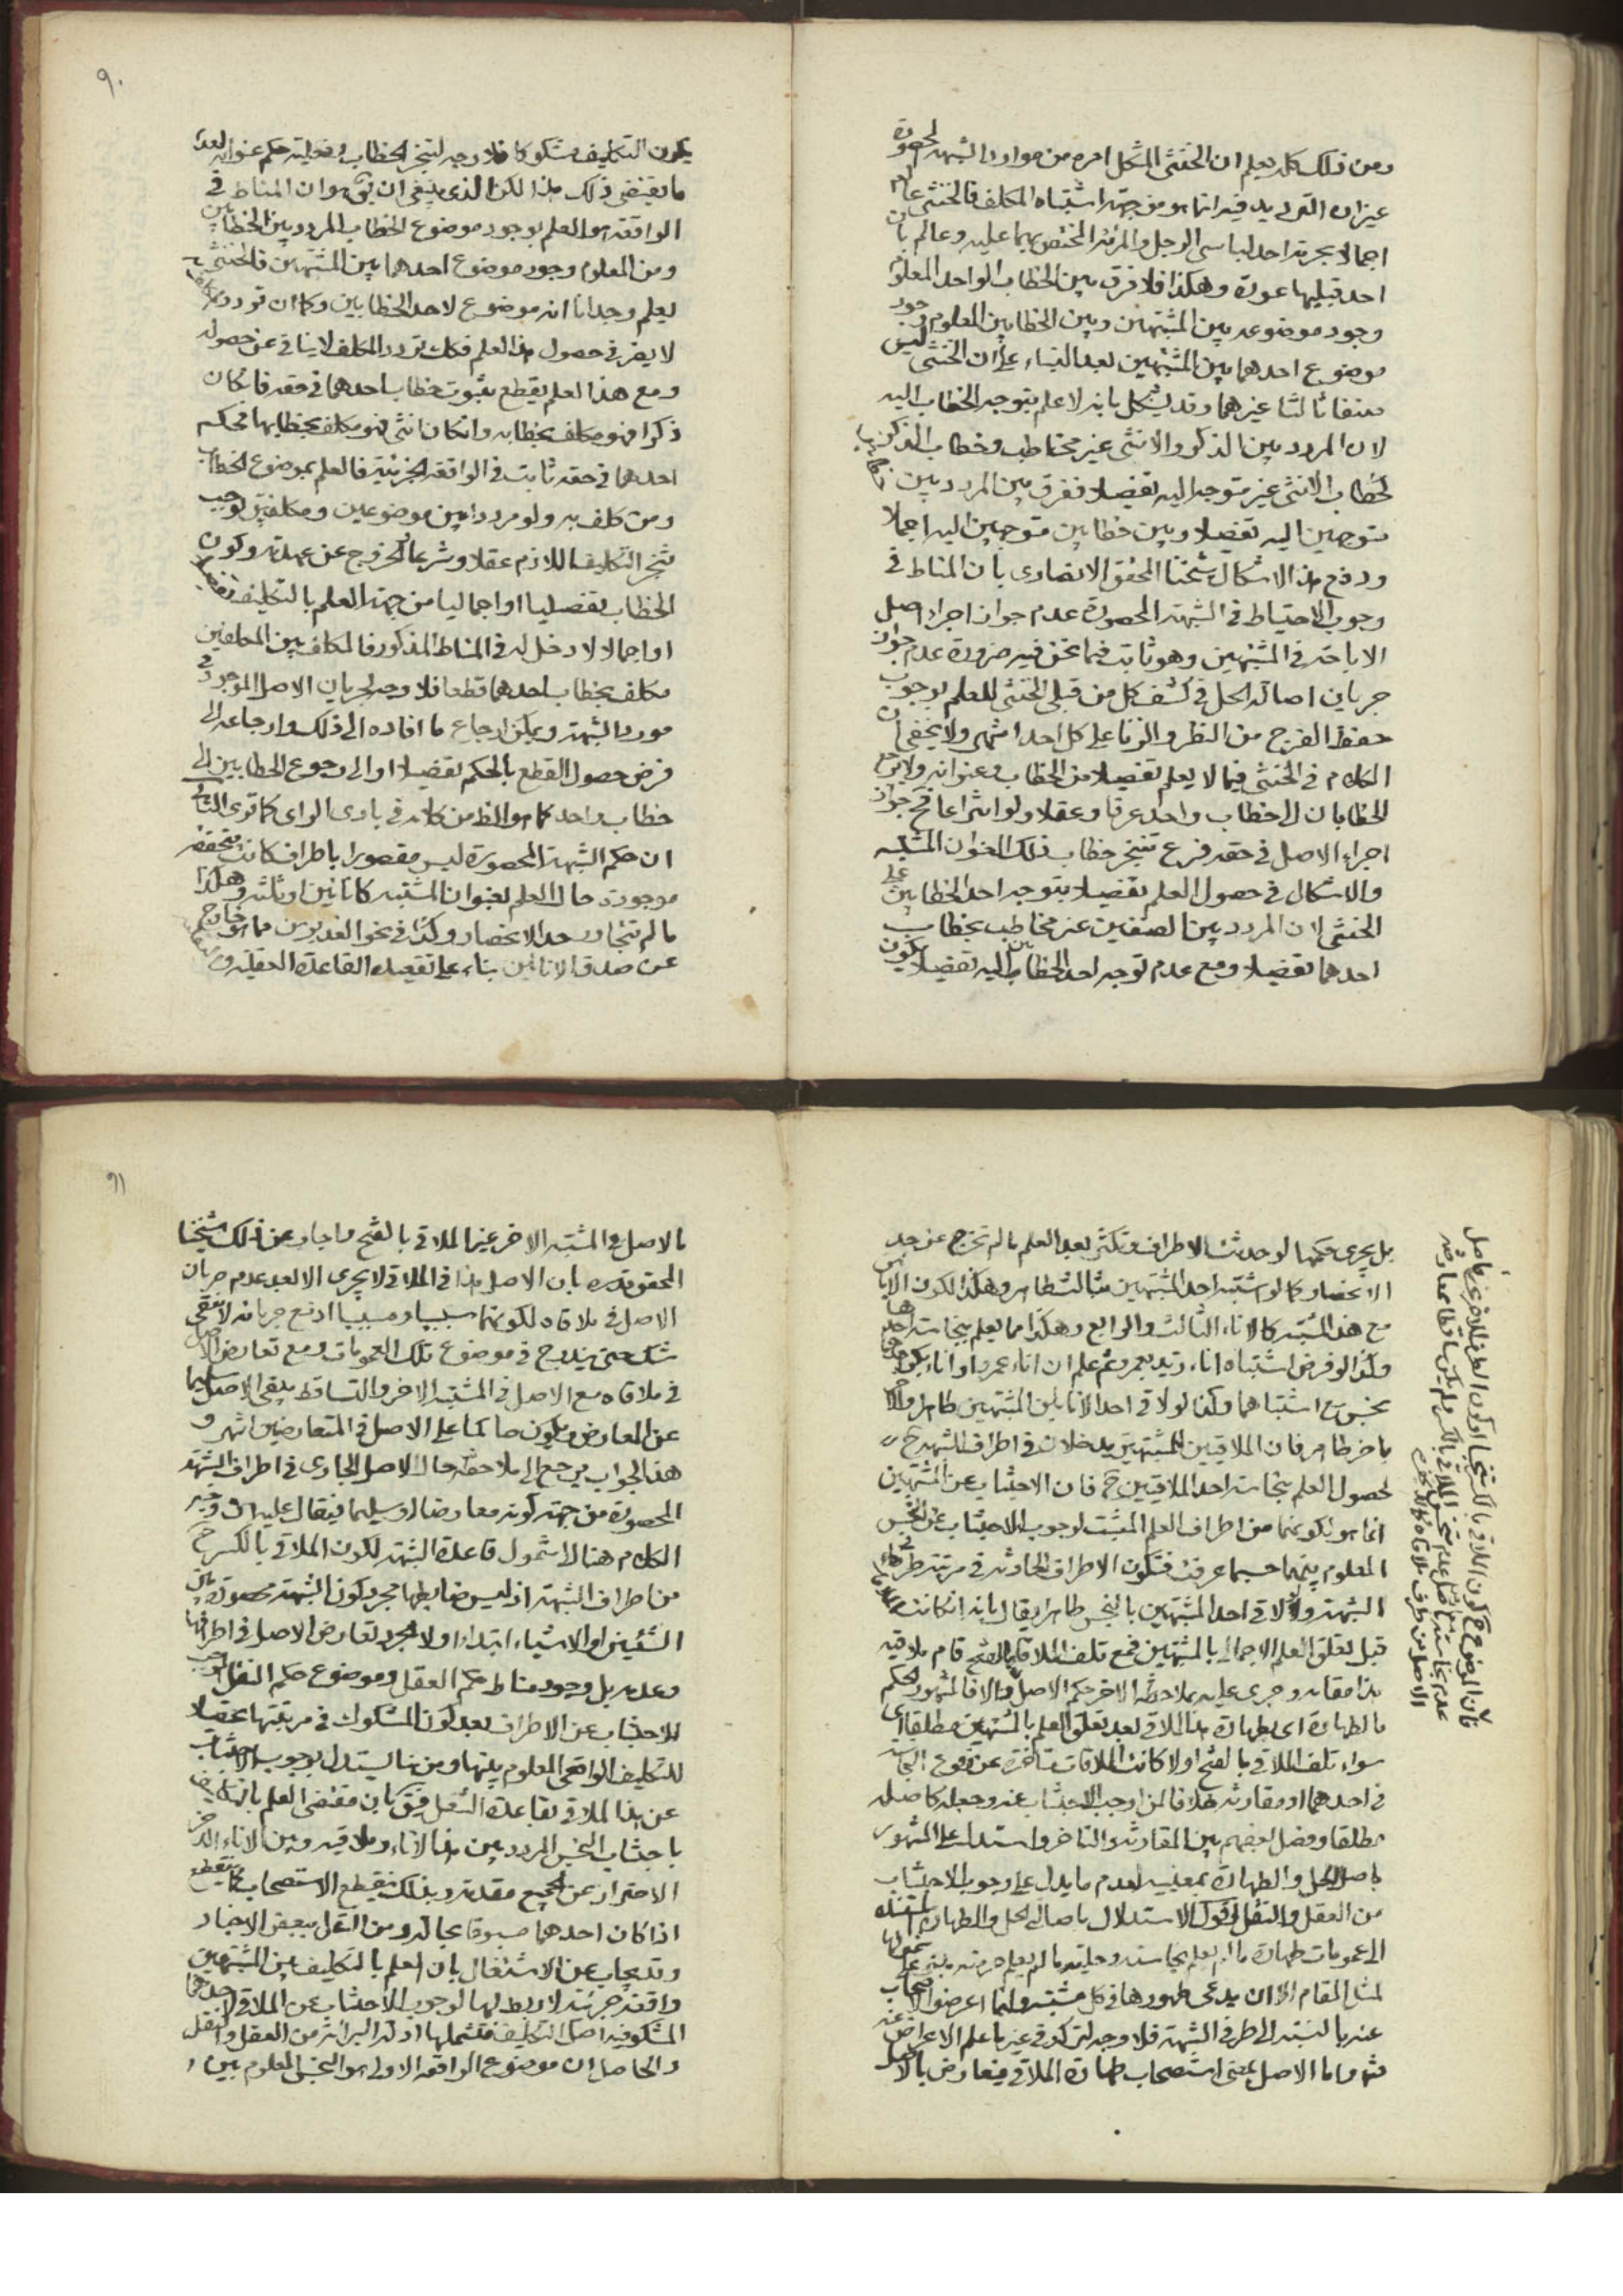 ومن ذلك كله يعلم ان الخنثى المشكل امره من موارد الشبهة المحصورة
غير ان الترديد فيه انما هو من جهة اشتباه المكلف فالخنثى عالم
اجمالا بحرمة احد لباسى الرجل والمرئة المختص بهما عليه وعالم بان
احد قبليها عورة وهكذا فلا فرق بين الخطاب الواحد المعلوم
وجود موضوعه بين المشتبهين وبين الخطابين المعلوم وجود
موضوع احدهما بين المشتبهين بعد البناء على ان الخنثى ليس
صنفا ثالثا غيرهما وقد يشكل بانه لا علم بتوجه الخطاب اليه
لان المردد بين الذكر والانثى غير مخاطب وخطاب الذكر
كخطاب الانثى غير متوجه اليه تفصيلا ففرق بين المردد بين
متوجهين اليه تفصيلا وبين خطابين متوجهين اليه اجمالا
ودفع هذا الاشكال شيخنا المحقق الانصارى بان المناط فى
وجوب الاحتياط فى الشبهة المحصورة عدم جواز اجراء اصل
الاباحة فى المشتبهين وهو ثابت فيما نحن فيه ضرورة عدم جواز
جريان اصالة الحل فى كشف كل من قبلى الخنثى للعلم بوجوب
حفظ الفرج من النظر والزنا على كل احد انتهى ولا يخفى ان
الكلام فى الخنثى فيما لا يعلم تفصيلا من الخطاب وعنوانه ولا يرجع
الخطابان الى خطاب واحد عرفا وعقلا ولو انتزاعا فح جواز
اجراء الاصل فى حقه فرع تنجز خطاب ذلك العنوان المشتبه
والاشكال فى حصول العلم تفصيلا بتوجه احد الخطابين على
الخنثى لان المردد بين الصنفين غير مخاطب بخطاب
احدهما تفصيلا ومع عدم توجه احد الخطابين اليه تفصيلا يكون
٩٠
يكون التكليف مشكوكا فلا وجه لتنجز الخطاب وفعلية حكم عنوانه لعدم
ما يقتضى ذلك هذا لكن الذى ينبغى ان يق هو ان المناط فى
الواقعة هو العلم بوجود موضوع الخطاب المردد بين الخطابين
ومن المعلوم وجود موضوع احدهما بين المشتبهين فالخنثى
يعلم وجدانا انه موضوع لاحد الخطابين وكما ان تردد
لا يضر فى حصول هذا العلم فكك تردد المكلف لا ينافى عن حصوله
ومع هذا العلم يقطع بثبوت خطاب احدهما فى حقه فانكان
ذكرا فهو مكلف بخطابه وانكان انثى فهو مكلف بخطابها فحكم
احدهما فى حقه ثابت فى الواقعة الجزئية فالعلم بموضوع الخطاب
ومن كلف به ولو مرددا بين موضوعين ومكلفين يوجب
تنجز التكليف اللازم عقلا وشرعا الخروج عن عهدته وكون
الخطاب تفصيليا او اجماليا من جهة العلم بالتكليف تفصيلا
او اجمالا لا دخل له فى المناط المذكور فالمكلف بين المكلفين
مكلف بخطاب احدهما قطعا فلا وجه لجريان الاصل الموجود فى
مورد الشبهة ويمكن ارجاع ما افاده الى ذلك وارجاعه الى
فرض حصول القطع بالحكم تفصيلا او الى رجوع الخطابين الى
خطاب واحد كما هو الظ من كلامه فى بادى الراى كما ترى الثالث
ان حكم الشبهة المحصورة ليس مقصورا باطراف كانت متحققة
موجودة حال العلم بعنوان المشتبه كاناءين او ثلثة وهكذا
ما لم تتجاوز حد الانحصار وكذا فى نحو الغديرين مما هو خارج
عن صدق الاناءين بناء على تقعيد القاعدة العقلية
بل يجرى حكمها لو حدثت الاطراف وتكثر بعد العلم ما لم تخرج عن حد
الانحصار كما لو اشتبه احد المشتبهين بثالث طاهر وهكذا لكون الاناء
مع هذا المشتبه كالاناء الثالث والرابع وهكذا مما يعلم بنجاسة احدها
وكذا لو فرض اشتباه اناء زيد بعمرو ثم علم ان اناء عمرو او اناء بكر
نجس مع اشتباههما وكذا لو لاقى احد الاناءين المشتبهين طاهر والاخر
باخر طاهر فان الملاقيين للمشتبهين يدخلان فى اطراف الشبهة ح
لحصول العلم بنجاسة احد الملاقيين ح فان الاجتناب عن المشتبهين
انما هو لكونهما من اطراف العلم المثبت لوجوب الاجتناب عن النجس
المعلوم بينهما حسبما عرفت فتكون الاطراف الحادثة فى مرتبة طرفى
الشبهة ولو لاقى احد المشتبهين بالنجس طاهر يقال بانه انكانت الملاقاة
قبل تعلق العلم الاجمالى بالمشتبهين فمع تلف الملاقى بالفتح قام ملاقيه
هذا مقامه وجرى عليه بملاحظة الاخر حكم الاصل والا فالمشهور الحكم
بالطهارة اى بطهارة هذا الملاقى بعد تعلق العلم بالمشتبهين مطلقا اى
سواء تلف الملاقى بالفتح اولا كانت الملاقات متاخرة عن وقوع النجاسة
فى احدهما او مقارنة خلافا لمن اوجب الاجتناب عنه وجعله كاصله
مطلقا وفصل بعضهم بين المقارنة والتاخر واستدل على المشهور
باصل الحل والطهارة بمعنييه لعدم ما يدل على وجوب الاجتناب
من العقل والنقل لكون الاستدلال باصالتى الحل والطهارة المستندة
الى عمومات طهارة ما لم يعلم نجاسته وحلية ما لم يعلم حرمته
لمثل المقام الا ان يدعى ظهورها فى كل مشتبه وانما اعرض الاصحاب
عنه بالنسبة الى طرفى الشبهة فلا وجه لتركه فى غير ما علم الاعراض عنه
فيه واما الاصل بمعنى استصحاب طهارة الملاقى فيعارض بالاصل
فان الموضوع ح كون الملاقى بالكسر نجسا او كون الطرف الاخر نجسا فاصل
عدم نجاسته يعارض اصل عدم تنجس الملاقى بالكسر ولم يكن ساقطا بمعارضة
الاصل من طرف ملاقاه
٩١
بالاصل فى المشتبه الاخر غير الملاقى بالفتح واجاب عن ذلك شيخنا
المحقق قده بان الاصل هذا فى الملاقى لا يجرى الا بعد عدم جريان
الاصل فى ملاقاه لكونهما سببيا ومسببيا اذ مع جريانه لا يبقى
شك حتى يندرج فى موضوع تلك العمومات ومع تعارض الاصل
فى ملاقاه مع الاصل فى المشتبه الاخر والتساقط يبقى الاصل سليما
عن المعارض ويكون حاكما على الاصل فى المتعارضين انتهى و
هذا الجواب يرجع الى ملاحظة حال الاصل الجارى فى اطراف الشبهة
المحصورة من جهة كونه معارضا او سليما فيقال عليه
الكلام هنا لا شمول قاعدة الشبهة لكون الملاقى بالكسر ح
من اطراف الشبهة اذ ليس ضابطها مجرد كون الشبهة محصورة بين
الشيئين او الاشياء ابتداء ولا مجرد تعارض الاصل فى اطرافها
وعدمه بل وجود مناط حكم العقل وموضوع حكم النقل
للاجتناب عن الاطراف بعد كون المشكوك فى مرتبتها تحصيلا
للتكليف الواقعى المعلوم بينها ومن هنا يستدل بوجوب الاجتناب
عن هذا الملاقى بقاعدة الشغل فيق بان مقتضى العلم بالتكليف
باجتناب النجس المردد بين هذا الاناء وملاقيه وبين الاناء الاخر
الاحتراز عن الجميع مقدمة وبذلك ينقطع الاستصحاب
اذا كان احدهما مسبوقا بحالة ومن النقل ببعض الاخبار
وقد يجاب عن الاشتغال بان العلم بالتكليف بين المشتبهين
واقعة جزئية لا ربط لها لوجوب الاجتناب عن الملاقى لاحدهما
المشكوك فيه اصل التكليف فتشملها ادلة البرائة من العقل والنقل
والحاصل ان موضوع الواقعة الاولى هو النجس المعلوم بين